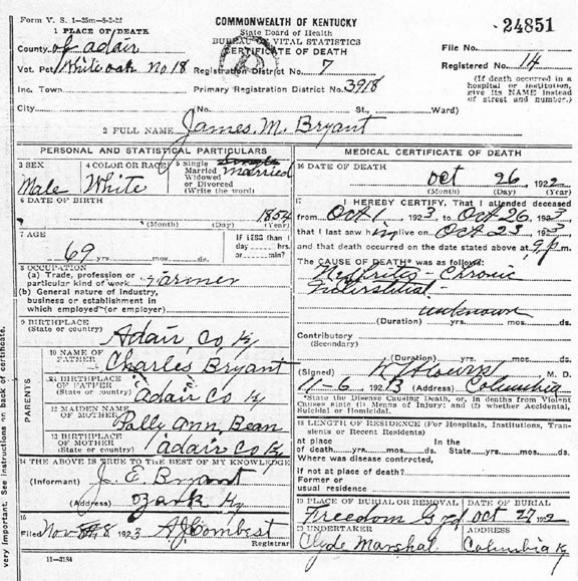 Form V. S. 1—25m—5-2-22
COMMONWEALTH OF KENTUCKY
State Board of Health
BUREAU OF VITAL STATISTICS
CERTIFICATE OF DEATH
24851
1 PLACE OF DEATH
County of adair
Vot. Pct White oak No 18
Registration District No. 7
File No.
Registered No. 14
Inc. Town
Primary Registration District No. 3918
(If death occurred in a hospital or institution, give its NAME instead of street and number.)
City (No. St., Ward)
2 FULL NAME James. M. Bryant
PERSONAL AND STATISTICAL PARTICULARS
3 SEX Male
4 COLOR OR RACE White
5 Single Married Widowed or Divorced (Write the word) married
6 DATE OF BIRTH 1854
(Month) (Day) (Year)
7 AGE 69
IF LESS than 1 day hrs. or min?
8 OCCUPATION
(a) Trade, profession or particular kind of work Farmer
(b) General nature of industry, business or establishment in which employed (or employer)
9 BIRTHPLACE
(State or country) Adair, Co, Ky
PARENTS
10 NAME OF FATHER Charles Bryant
11 BIRTHPLACE OF FATHER
(State or country) adair Co Ky
12 MAIDEN NAME OF MOTHER Polly Ann, Bean
13 BIRTHPLACE OF MOTHER
(State or country) adair Co Ky
14 THE ABOVE IS TRUE TO THE BEST OF MY KNOWLEDGE
(Informant) J. E. Bryant
(Address) Ozark Ky
15
Filed Nov 8 1923 A J Combest
Registrar
11—2184
MEDICAL CERTIFICATE OF DEATH
16 DATE OF DEATH
oct 26, 192
(Month) (Day) (Year)
17 I HEREBY CERTIFY, That I attended deceased
from Oct 1, 1923, to Oct 26, 1923
that I last saw him alive on Oct 23, 1923
and that death occurred on the date stated above at 9 p m.
The CAUSE OF DEATH* was as follows:
Nephritis - Chronic
Interstitial -
unknown
(Duration) yrs. mos. ds.
Contributory
(Secondary)
(Duration) yrs. mos. ds.
(Signed) M. D.
11-6, 1923 (Address) Columbia
*State the Disease Causing Death, or, in deaths from Violent Causes state (1) Means of Injury; and (2) whether Accidental, Suicidal or Homicidal.
18 LENGTH OF RESIDENCE (For Hospitals, Institutions, Transients or Recent Residents)
At place of death yrs. mos. ds. In the State yrs. mos. ds.
Where was disease contracted,
if not at place of death?
Former or usual residence
19 PLACE OF BURIAL OR REMOVAL
Freedom G yd
DATE OF BURIAL
oct 27 192
20 UNDERTAKER
Clyde Marshal
ADDRESS
Columbia Ky
very important. See instructions on back of certificate.